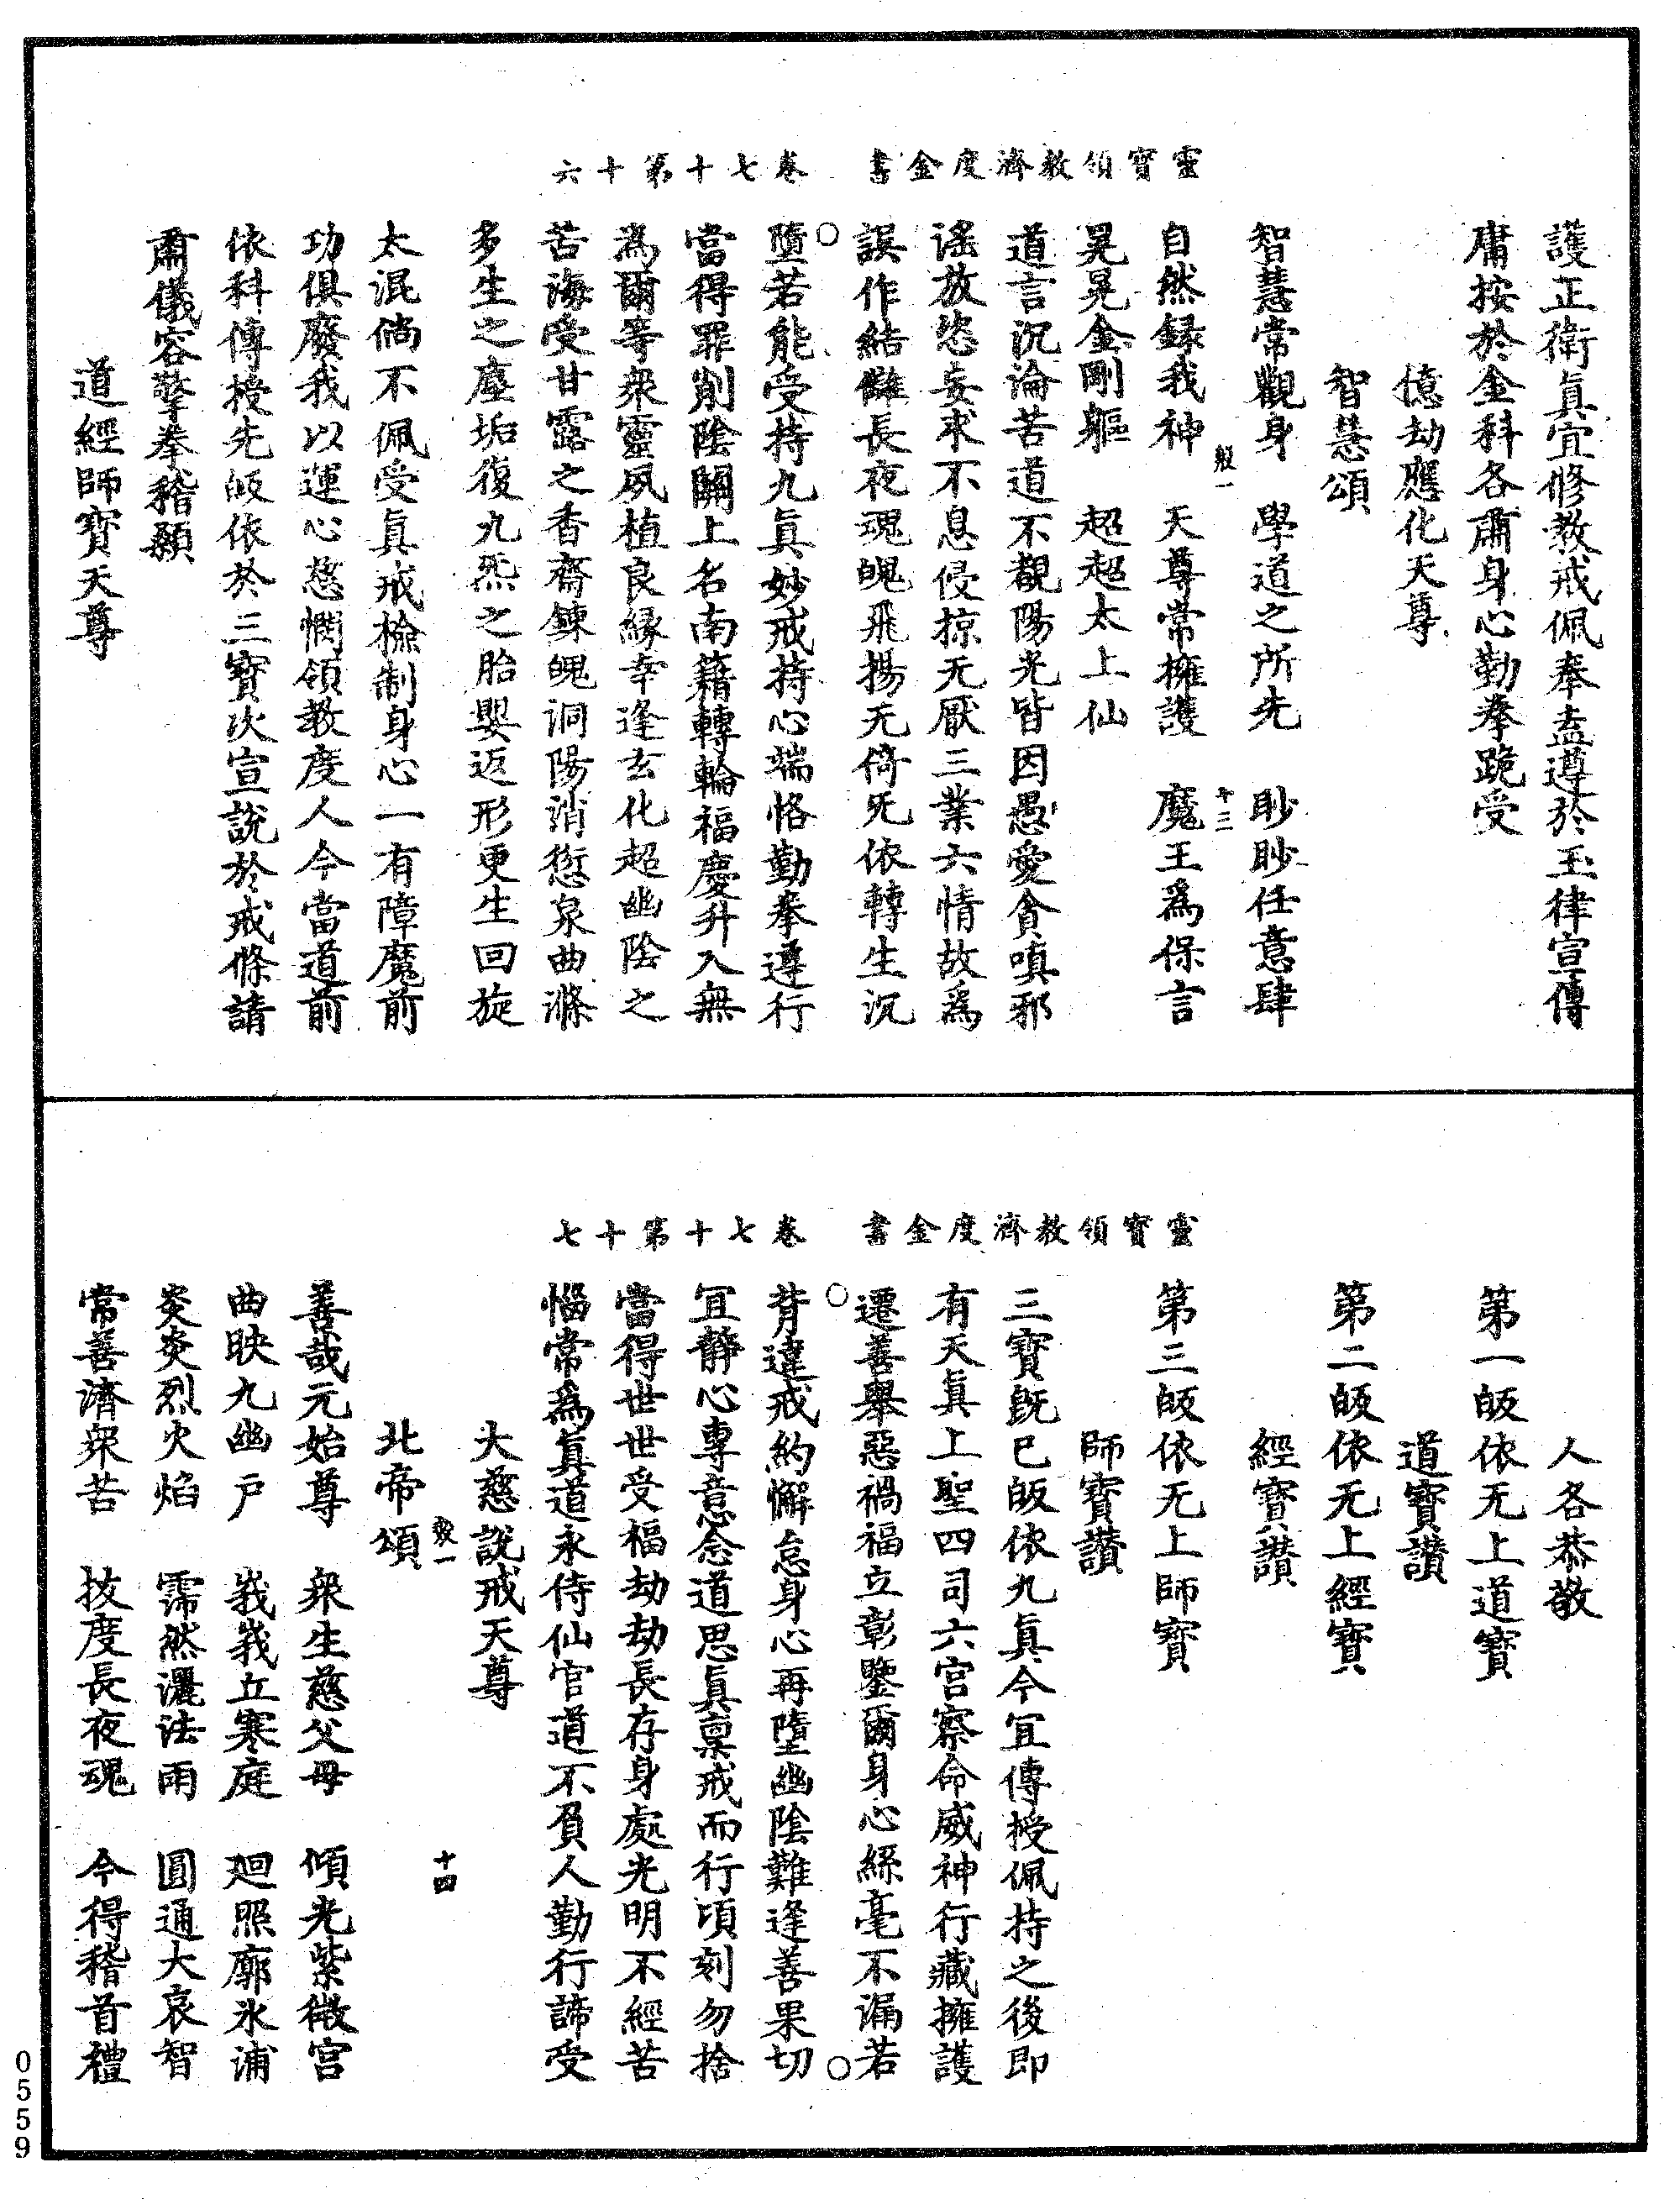 靈寶領教濟度金書　卷七十第十六
護正衛真宜修教戒佩奉盍遵於玉律宣傳
庸按於金科各肅身心勤拳跪受
億劫應化天尊
智慧頌
智慧常觀身　學道之所先　眇眇任意肆
般一　十三
自然録我神　天尊常擁護　魔王爲保言
晃晃金剛軀　超超太上仙
道言沉淪苦道不覩陽光皆因愚愛貪嗔邪
謠放恣妄求不息侵掠无厭三業六情故爲
誤作結讎長夜魂魄飛揚无倚无依轉生沉
墮若能受持九真妙戒持心端恪勤拳遵行
當得罪削陰關上名南籍轉輪福慶升入無
爲爾等衆靈夙植良縁幸逢玄化超幽陰之
苦海受甘露之香齋鍊魄洞陽消愆泉曲滌
多生之塵垢復九炁之胎嬰返形更生回旋
太混倘不佩受真戒檢制身心一有障魔前
功俱廢我以運心慈憫領教度人今當道前
依科傳授先皈依於三寶次宣說於戒條請
肅儀容擎拳稽顙
道經師寶天尊
靈寶領教濟度金書　卷七十第十七
人各恭敬
第一皈依无上道寶
道寶讚
第二皈依无上經寶
經寶讚
第三皈依无上師寶
師寶讚
三寶旣已皈依九真今宜傳授佩持之後即
有天真上聖四司六宮察命威神行藏擁護
遷善舉惡禍福立彰鑒爾身心絲毫不漏若
背違戒約懈怠身心再墮幽陰難逢善果切
宜靜心專意念道思真稟戒而行頃刻勿捨
當得世世受福劫劫長存身處光明不經苦
惱常爲真道永侍仙官道不負人勤行諦受
大慈說戒天尊
般一　十四
北帝頌
善哉元始尊　衆生慈父母　傾光紫微宮
曲映九幽户　峩峩立寒庭　廻照廓氷浦
炎炎烈火焰　霈然灑法雨　圓通大哀智
常善濟衆苦　拔度長夜魂　今得稽首禮
0559